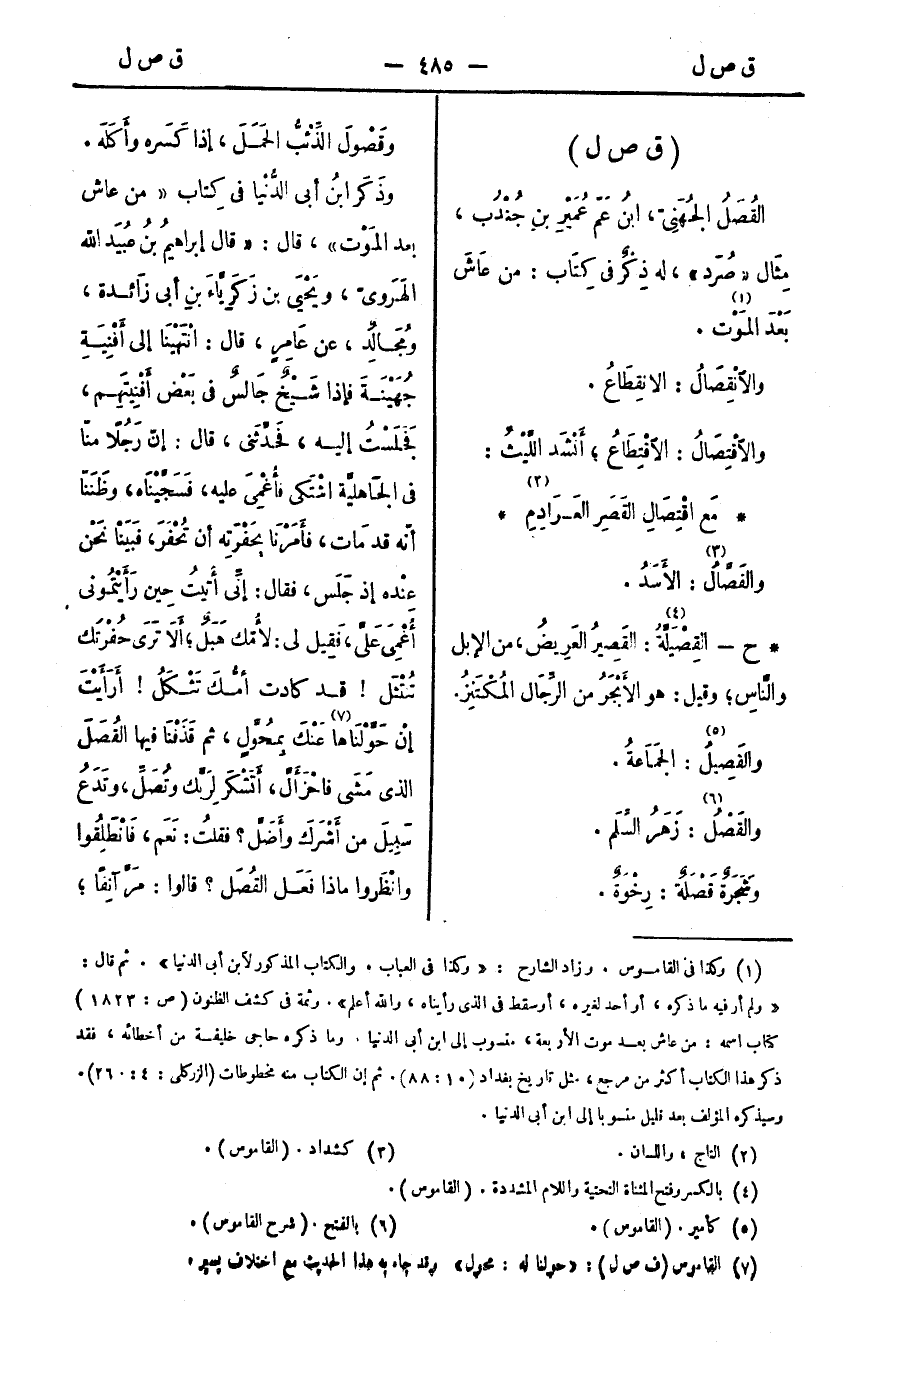 ق ص ل — ٤٨٥ — ق ص ل
(ق ص ل)
القُصَلُ الجُهَنِيّ، ابنُ عَمّ عُمَيْرِ بنِ جُنْدُب،
مِثَال «صُرَد»، له ذِكْرٌ فى كِتَاب: من عَاشَ
بَعْدَ المَوْت (١).
والاْنْقِصَالُ: الانقِطَاعُ.
والاْقْتِصَالُ: الاقْتِطَاعُ؛ أَنْشَد اللَّيْثُ:
* مَع اقْتِصَالِ القَصَرِ العَـرَادِمِ (٢) *
والقَصَّالُ (٣): الأَسَدُ.
* ح – القِصْيَلَّةُ (٤): القَصِيرُ العَرِيضُ، من الإبل
والنّاسِ؛ وقيل: هو الأَبْجَرُ من الرِّجَال المُكْتَنِزُ.
والقَصِيلُ (٥): الجَمَاعَةُ.
والقَصْلُ (٦): زَهَرُ السَّلَم.
وشَجَرَةٌ قَصْلَةٌ: رِخْوَةٌ.
وقَصْوَلَ الذِّئْبُ الحَمَـلَ، إذا كَسَره وأَكَلَه.
وذَكَر ابنُ أبى الدُّنْيا فى كِتاب «من عاش
بعد المَوْت»، قال: «قال إبراهيمُ بنُ عبيد الله
الهَرَوىّ، ويَحْيَى بن زَكَريّاءَ بنِ أبى زائدة،
ومُجَـالِدٌ، عن عَامِرٍ، قال: انْتَهَيْنَا إلى أَفْنِيَـةِ
جُهَيْنَـةَ فإذا شَـيْخٌ جَالسٌ فى بَعْض أَفْنِيَتِهـم،
فَجَلَسْتُ إليـه، فحَدّثَنى، قال: إنّ رَجُلًا منّا
فى الجَاهليَّة اشْتَكَى فأُغْمِىَ عليه، فسَجَّيْنَاه، وظَنَنّا
أنّه قد مَات، فأَمَرْنا بِحُفْرَتِه أن تُحْفَرَ، فبَيْنَا نَحْن
عِنْده إذ جَلَس، فقال: إنِّى أُتيتُ حين رَأَيْتُمُونى
أُغْمِىَ عَلَىَّ، فَقِيل لى: لأُمّك هَبَلٌ؛ أَلَا تَرَى حُفْرَتَك
تُنْثَل! قـد كادت أمُّـكَ تَثْـكَلُ! أَرَأَيْتَ
إنْ حَوَّلْنَاها (٧) عَنْكَ بِمُحَوَّلٍ، ثم قَذَفْنَا فيها القُصَلَ
الذى مَشَى فاحْزَأَلّ، أَتَشْكُر لِرَبّك وتُصَلِّ، وتَدَعُ
سَبِيلَ من أَشْرَكَ وأَضَلّ؟ فقلتُ: نَعَم، فانْطَلِقُوا
وانْظُروا ماذا فَعَـل القُصَل؟ قالوا: مَرّ آنِفًا؛
(١) وكذا فى القامـوس. وزاد الشارح: «وكذا فى العباب. والكتاب المذكور لابن أبى الدنيا». ثم قال:
«ولم أر فيه ما ذكره، أو أحد لغيره، أو سقط فى الذى رأيناه، والله أعلم». وثمة فى كشف الظنون (ص: ١٨٢٣)
كتاب اسمه: من عاش بعـد موت الأربعة، منسوب إلى ابن أبى الدنيا. وما ذكره حاجى خليفـة من أخطائه، فقد
ذكر هذا الكتاب أكثر من مرجع، مثل تاريخ بغداد (١٠: ٨٨). ثم إن الكتاب منه مخطوطات (الزركلى: ٤: ٢٦٠).
وسيذكره المؤلف بعد قليل منسوبا إلى ابن أبى الدنيا.
(٢) التاج، واللسان. (٣) كشداد. (القاموس).
(٤) بالكسر وفتح المثناة التحتية واللام المشددة. (القاموس).
(٥) كأمير. (القاموس). (٦) بالفتح. (شرح القاموس).
(٧) القاموس (ف ص ل): «حولنا له: محول» وقد جاء به هذا الحديث مع اختلاف يسير.